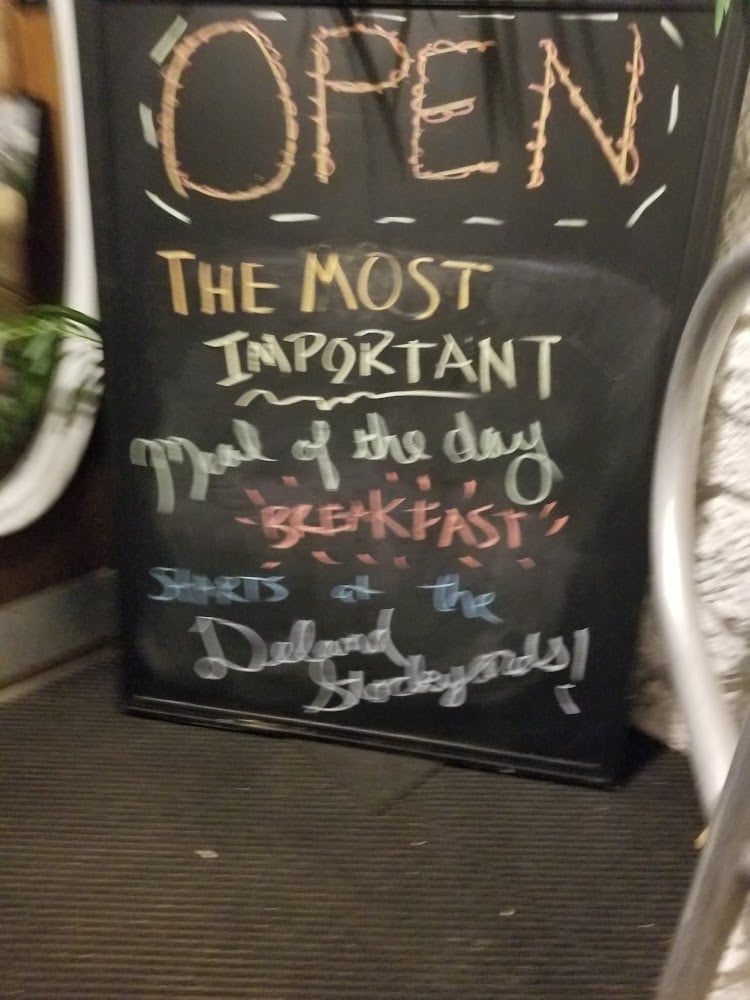 OPEN
THE MOST
IMPORTANT
Meal of the day
BREAKFAST
STARTS at the
Deland
Stockyards!